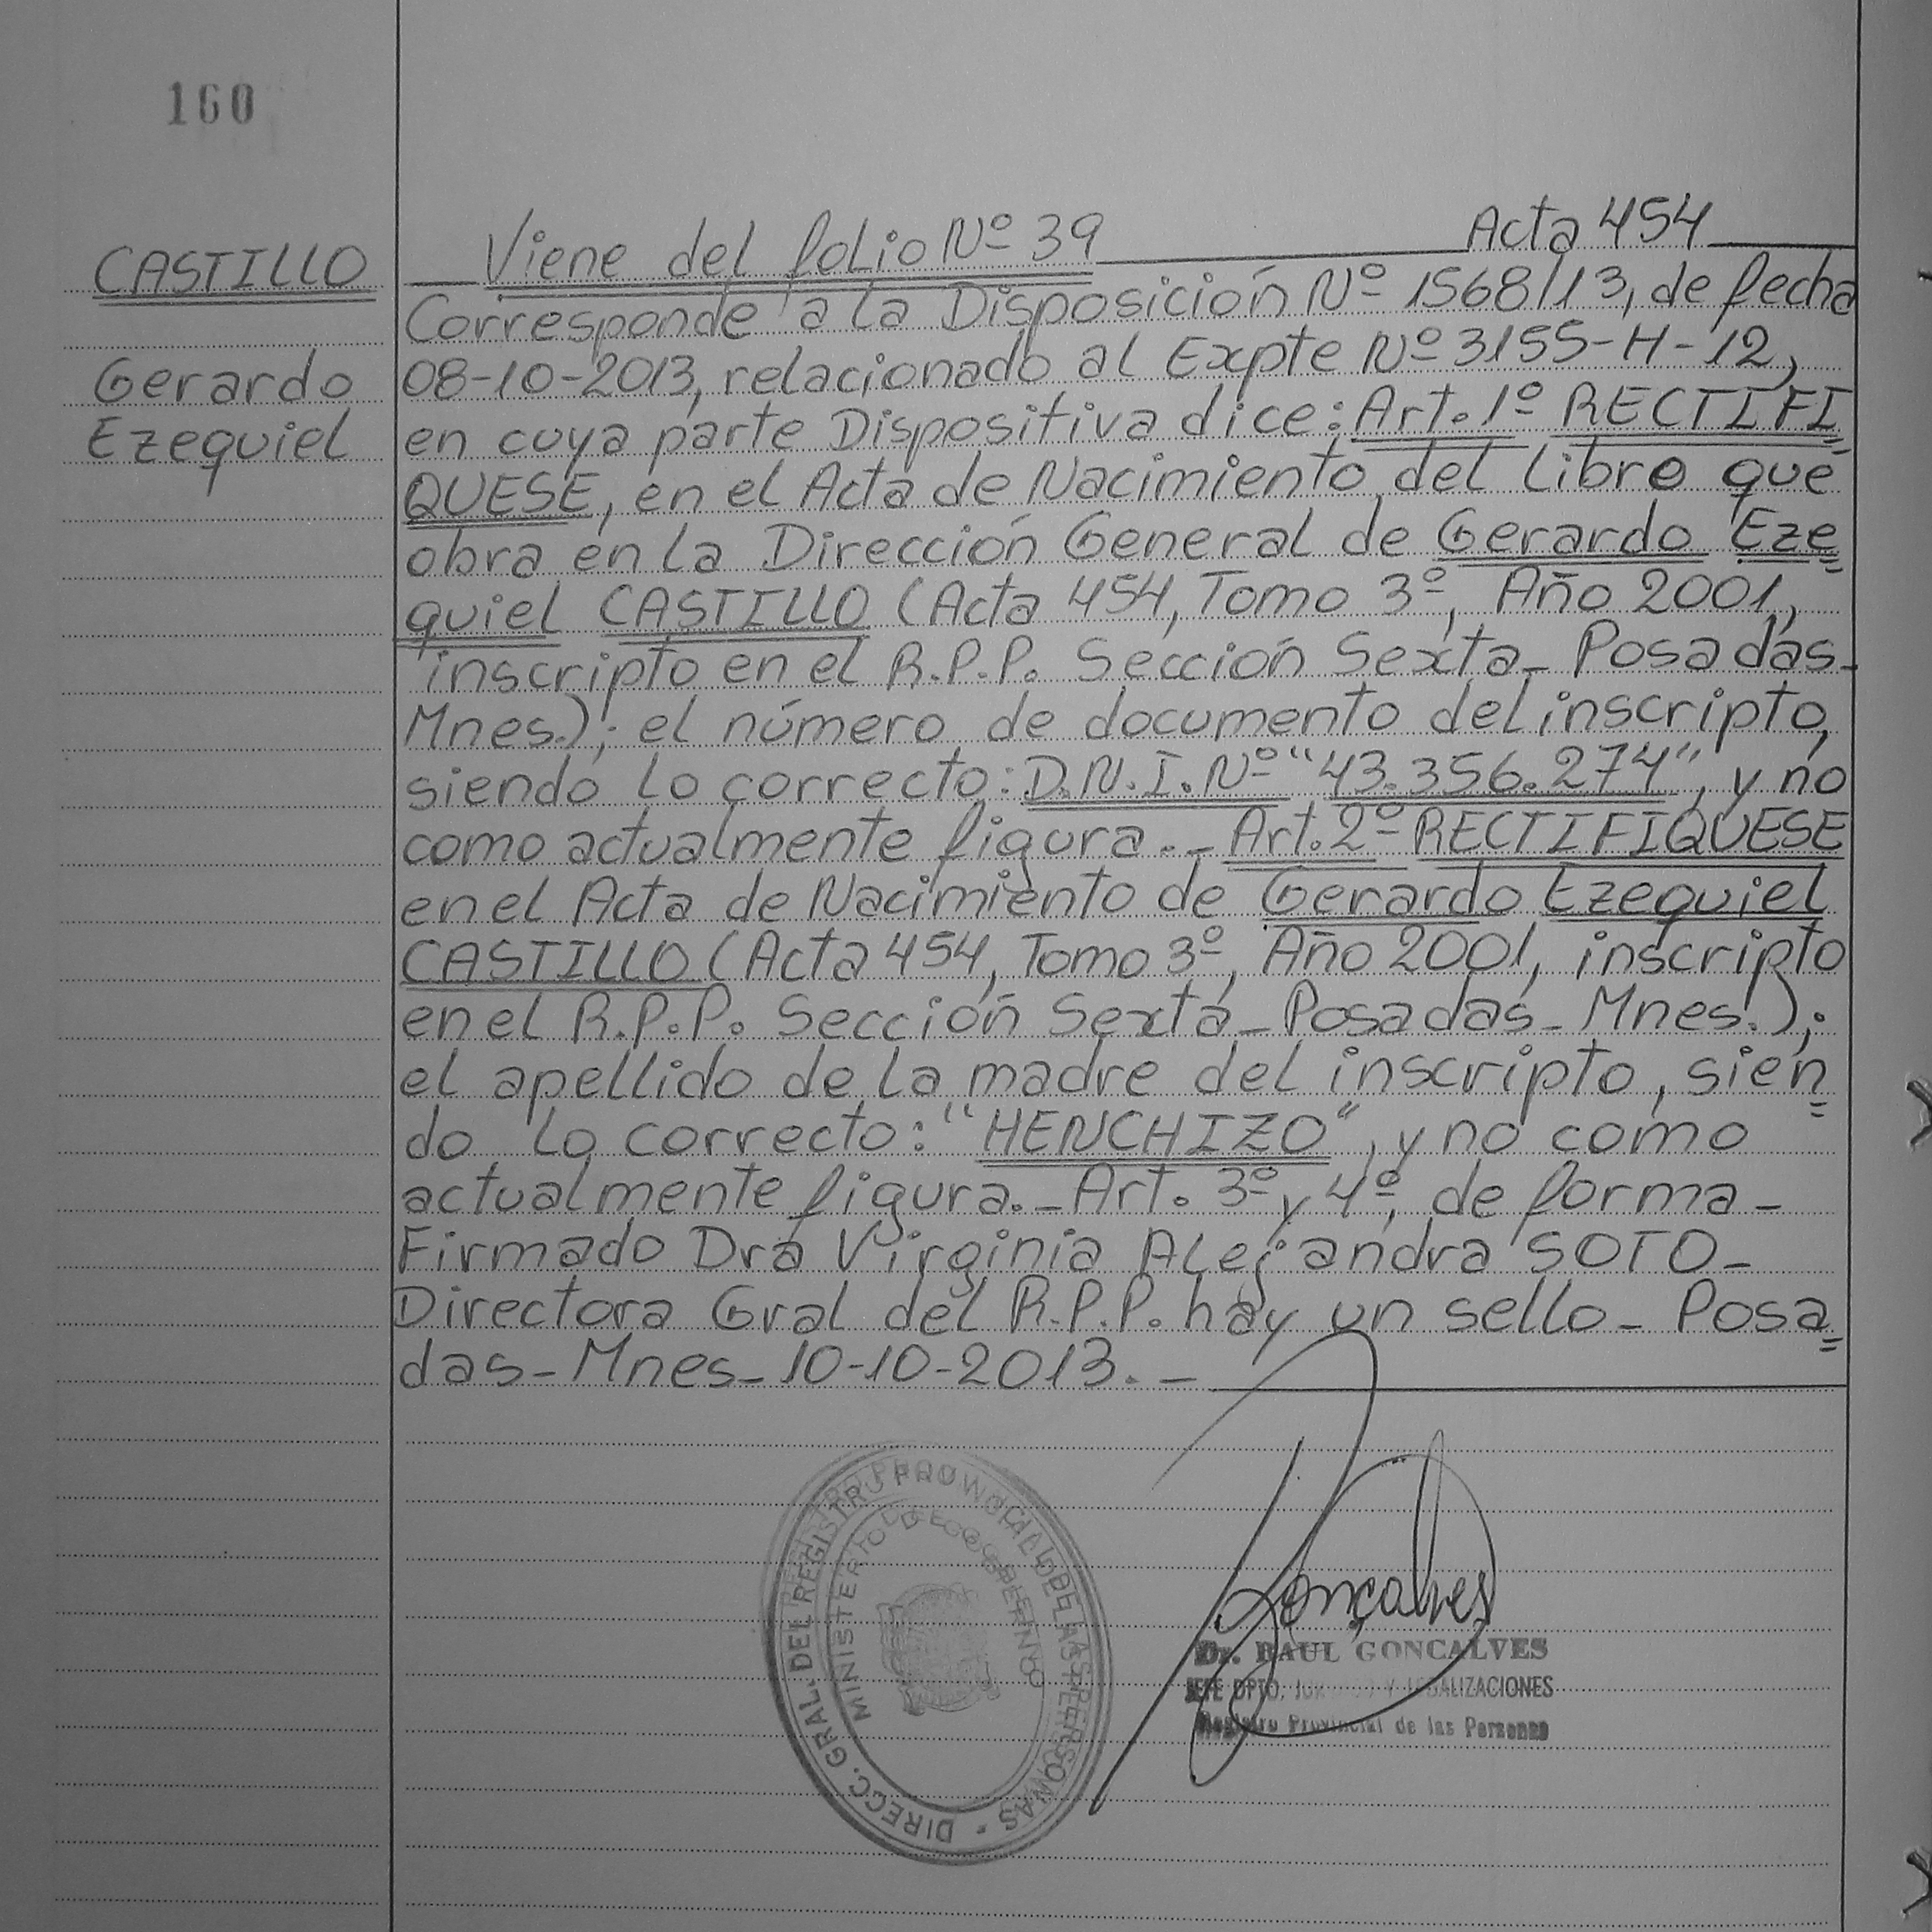 160
CASTILLO
Gerardo
Ezequiel
Viene del folio Nº 39 Acta 454
Corresponde a la Disposición Nº 1568/13, de fecha
08-10-2013, relacionado al Expte Nº 3155-H-12,
en cuya parte Dispositiva dice: Art. 1º RECTIFI
QUESE, en el Acta de Nacimiento del Libro que
obra en la Dirección General de Gerardo Eze
quiel CASTILLO (Acta 454, Tomo 3º, Año 2001,
inscripto en el R.P.P. Sección Sexta_ Posadas_
Mnes.); el número de documento del inscripto,
siendo lo correcto: D.N.I. Nº "43.356.274", y no
como actualmente figura._ Art. 2º RECTIFIQUESE
en el Acta de Nacimiento de Gerardo Ezequiel
CASTILLO (Acta 454, Tomo 3º, Año 2001, inscripto
en el R.P.P. Sección Sexta_ Posadas_ Mnes.);
el apellido de la madre del inscripto, sien
do lo correcto: "HENCHIZO", y no como
actualmente figura._ Art. 3º y 4º, de forma_
Firmado Dra Virginia Alejandra SOTO_
Directora Gral del R.P.P. hay un sello_ Posa
das_ Mnes_ 10-10-2013._
DIRECC. GRAL. DEL REGISTRO PROVINCIAL DE LAS PERSONAS -
MINISTERIO DE GOBIERNO
Gonçalves
Dr. RAUL GONCALVES
JEFE DPTO. Y LEGALIZACIONES
Registro Provincial de las Personas